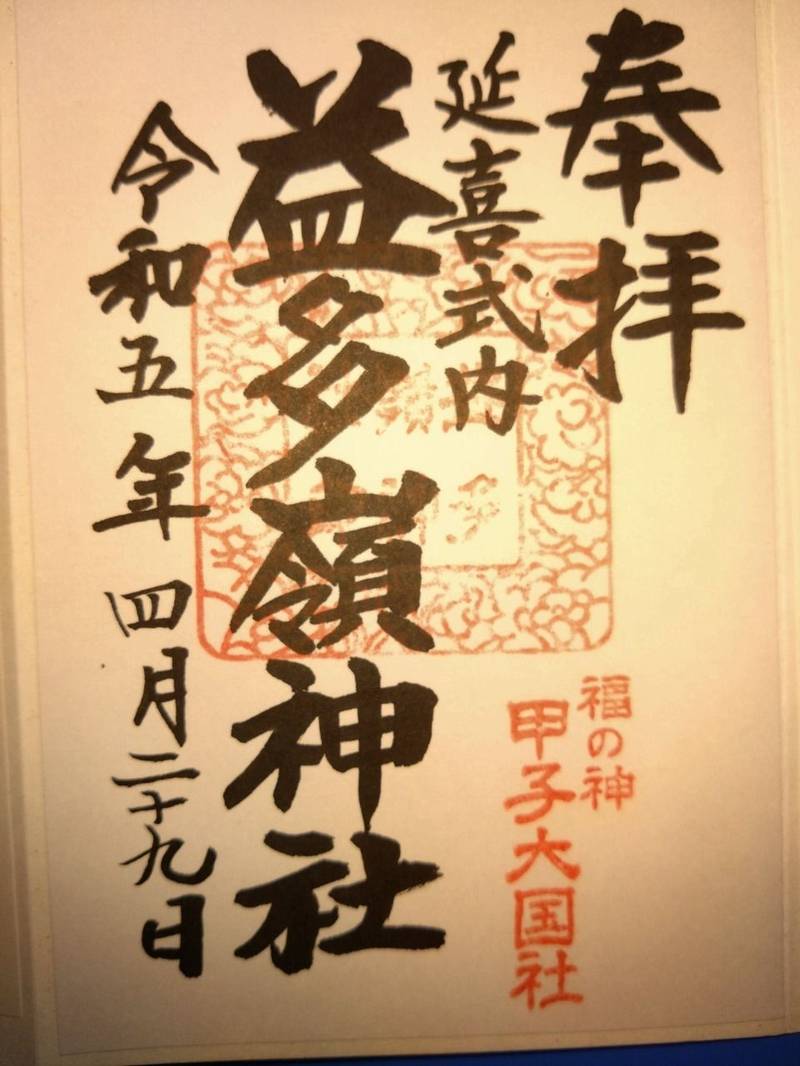 奉拝
延喜式内
益多嶺神社
令和五年四月二十九日
福の神
甲子大国社